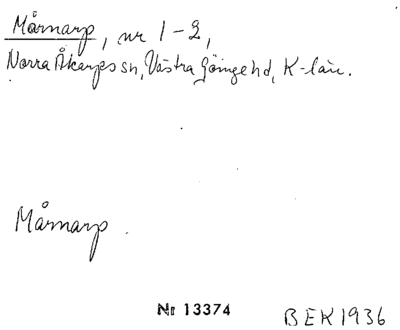 Mårnarp, nr 1-2,
Norra Åkarps sn, Västra Göinge hd, K-län.
Mårnarp.
Nr 13374
BEK 1936